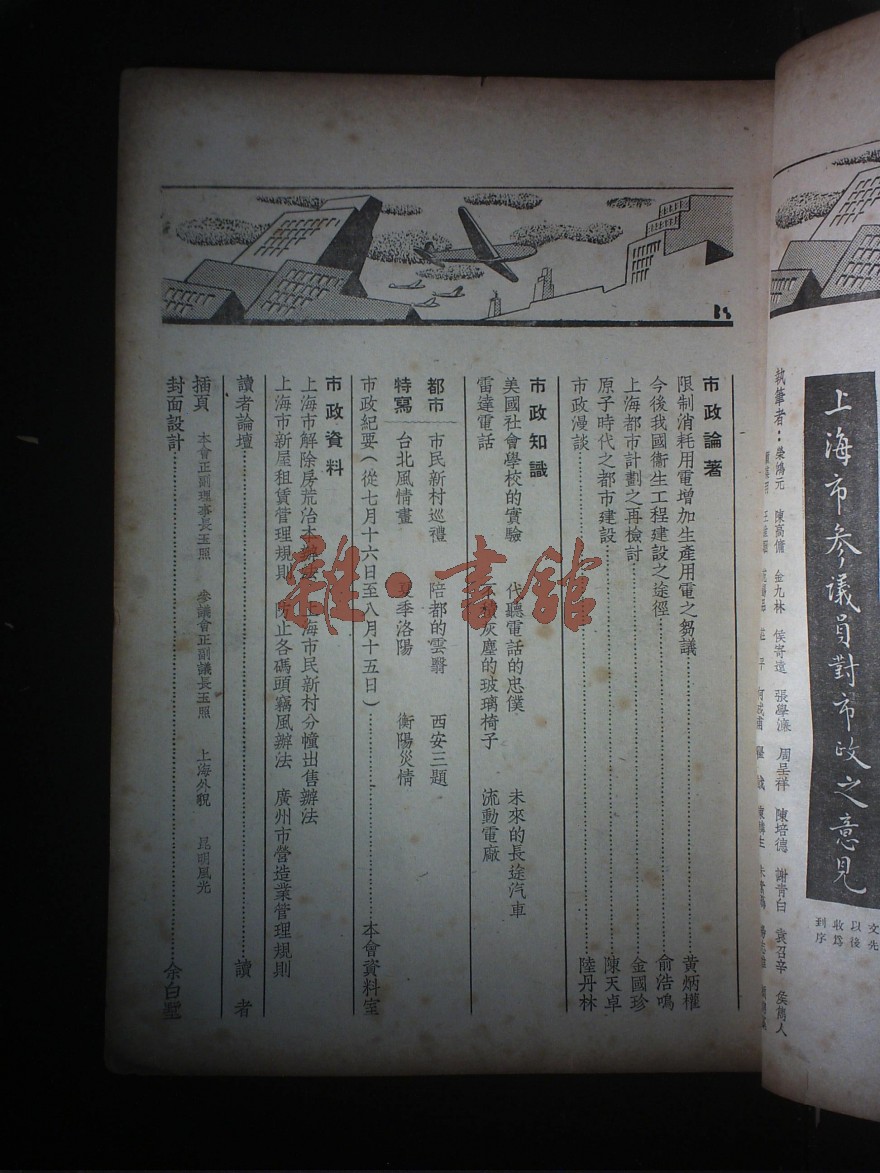 上海市參議員對市政之意見
文先
以後
收爲
到序
執筆者：榮鴻元　陳高傭　金九林　侯寄遠　張學濂　周呈祥　陳培德　謝青白　袁召辛　侯雋人
市政論著
限制消耗用電增加生產用電之芻議……黃炳權
今後我國衞生工程建設之途徑……俞浩鳴
上海都市計劃之再檢討……金國珍
原子時代之都市建設……陳天卓
市政漫談……陸丹林
市政知識
美國社會學校的實驗　代聽電話的忠僕　未來的長途汽車
雷達電話　不積灰塵的玻璃椅子　流動電廠
都市　市民新村巡禮　陪都的雲翳　西安三題
特寫　台北風情畫　夏季洛陽　衡陽災情
市政紀要（從七月十六日至八月十五日）……本會資料室
市政資料
上海市解除房荒治本辦法　上海市民新村分幢出售辦法
上海市新屋租賃管理規則　防止各碼頭竊風辦法　廣州市營造業管理規則
讀者論壇……讀者
插頁　本會正副理事長玉照　參議會正副議長玉照　上海外灘　昆明風光
封面設計……余白墅
雜·書館